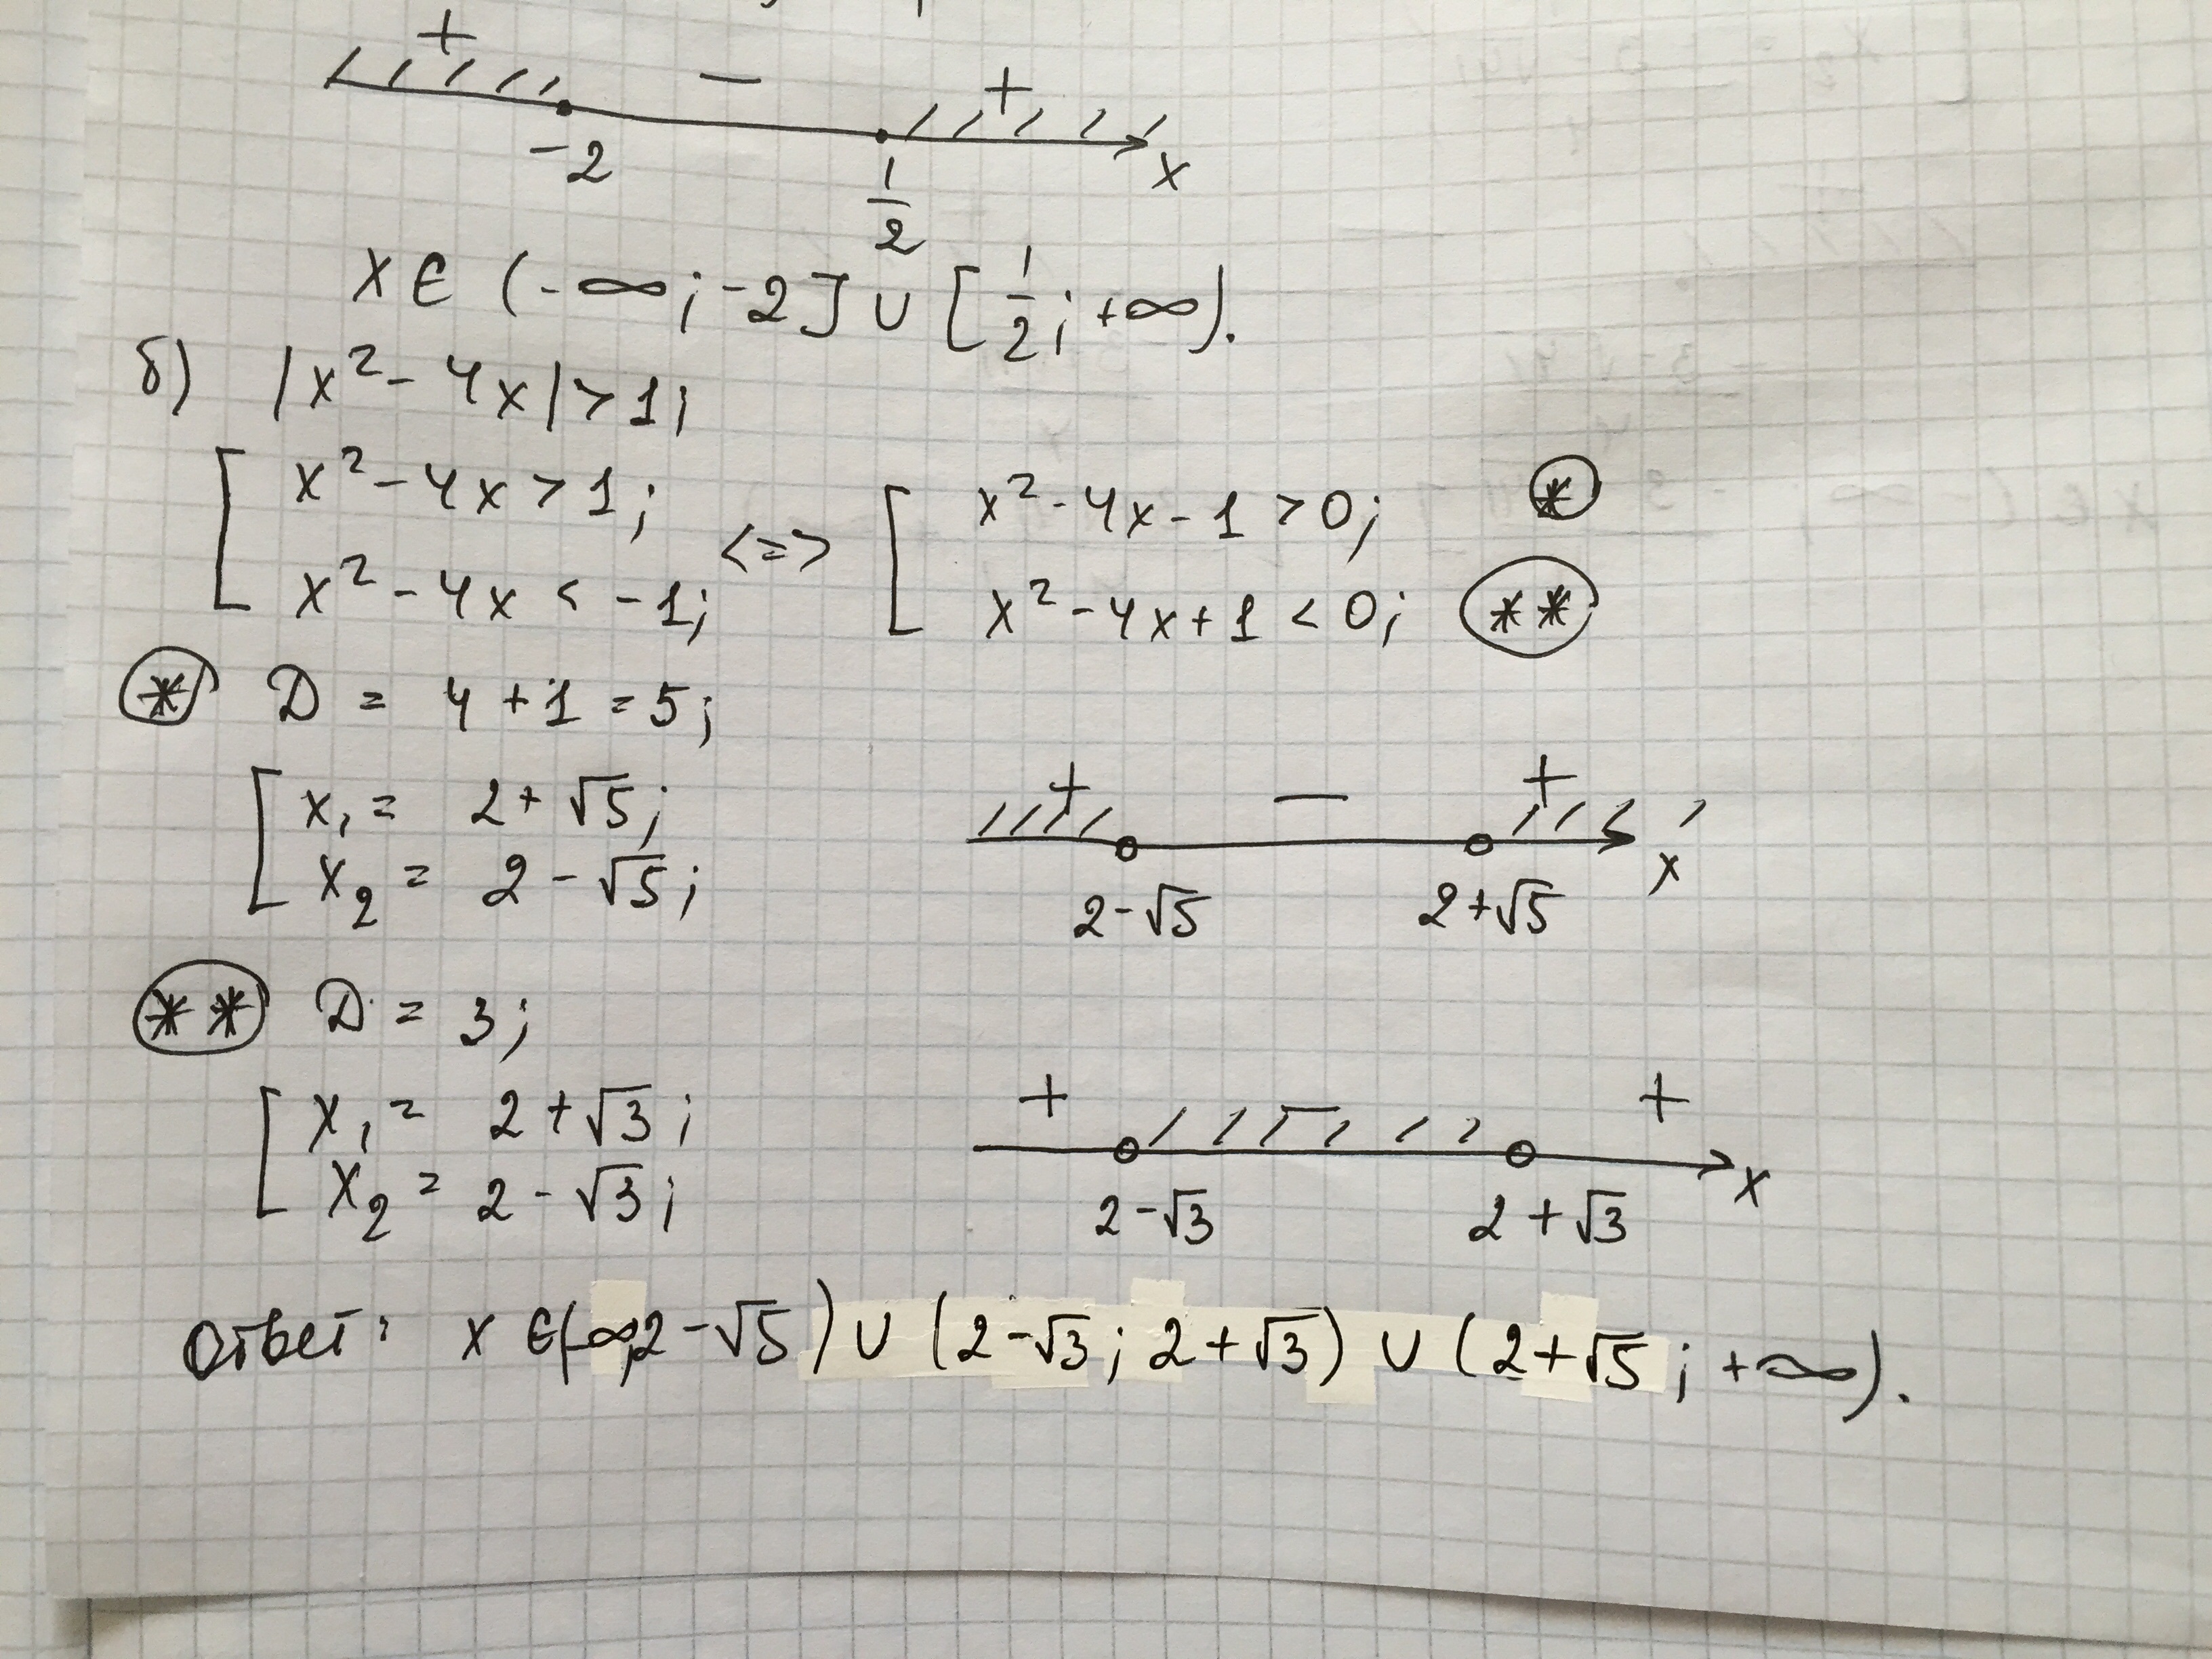 + − +
−2 1/2 x
x ∈ (-∞; -2] ∪ [1/2; +∞).
б) |x² - 4x| > 1;
[ x² - 4x > 1; <=> [ x² - 4x - 1 > 0; (*)
x² - 4x < -1; x² - 4x + 1 < 0; (**)
(*) D = 4 + 1 = 5;
[ x₁ = 2 + √5; + − +
x₂ = 2 - √5; x
2-√5 2+√5
(**) D = 3;
[ x₁ = 2 + √3; + − +
x₂ = 2 - √3; x
2-√3 2+√3
Ответ: x ∈ (-∞; 2-√5) ∪ (2-√3; 2+√3) ∪ (2+√5; +∞).